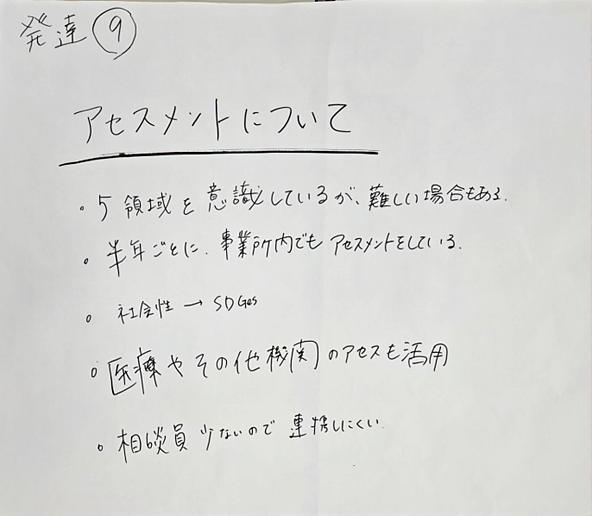 発達⑨
アセスメントについて
・5領域を意識しているが、難しい場合もある.
・半年ごとに、事業所内でもアセスメントをしている.
・社会性→SDGs
・医療やその他機関のアセスも活用
・相談員少ないので連携しにくい.